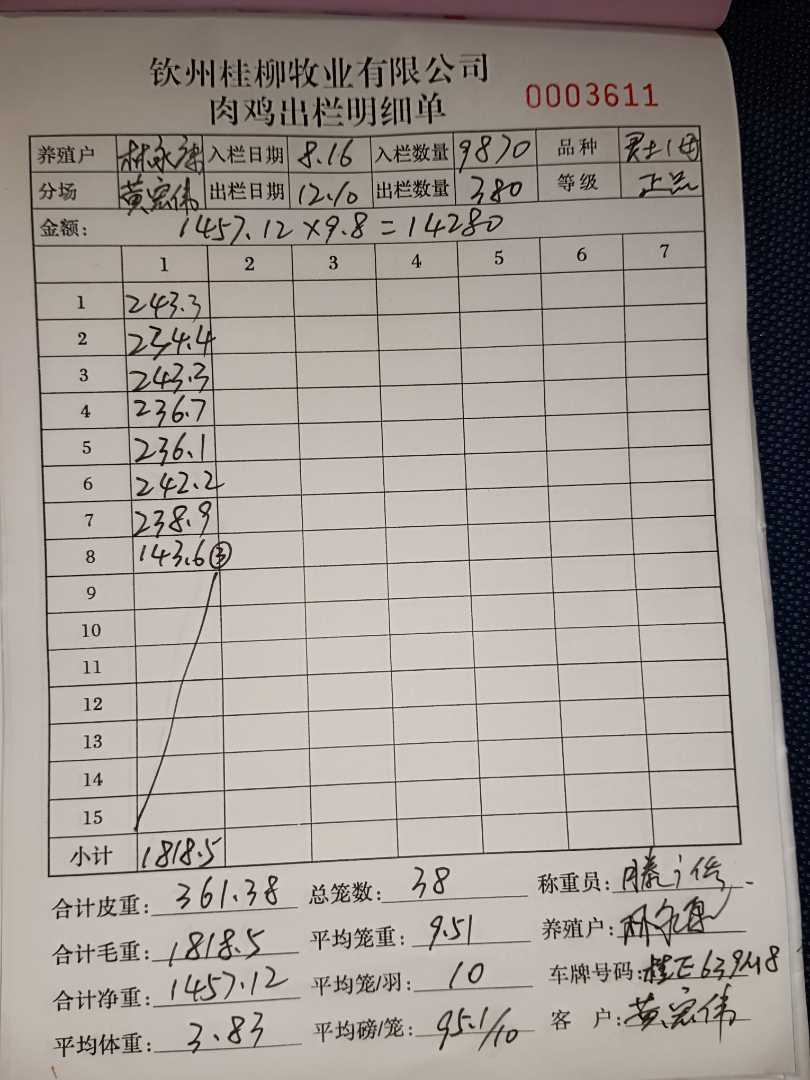 钦州桂柳牧业有限公司
肉鸡出栏明细单 0003611
养殖户 林永 入栏日期 8.16 入栏数量 9870 品种
分场 黄宏伟 出栏日期 12.10 出栏数量 380 等级 正品
金额: 1457.12×9.8=14280
1 2 3 4 5 6 7
1 243.3
2 234.4
3 243.3
4 236.7
5 236.1
6 242.2
7 238.9
8 143.6 ③
9
10
11
12
13
14
15
小计 1818.5
合计皮重: 361.38 总笼数: 38 称重员: 滕
合计毛重: 1818.5 平均笼重: 9.51 养殖户: 林永
合计净重: 1457.12 平均笼/羽: 10 车牌号码: 桂E639M8
平均体重: 3.83 平均磅/笼: 95.1/10 客户: 黄宏伟